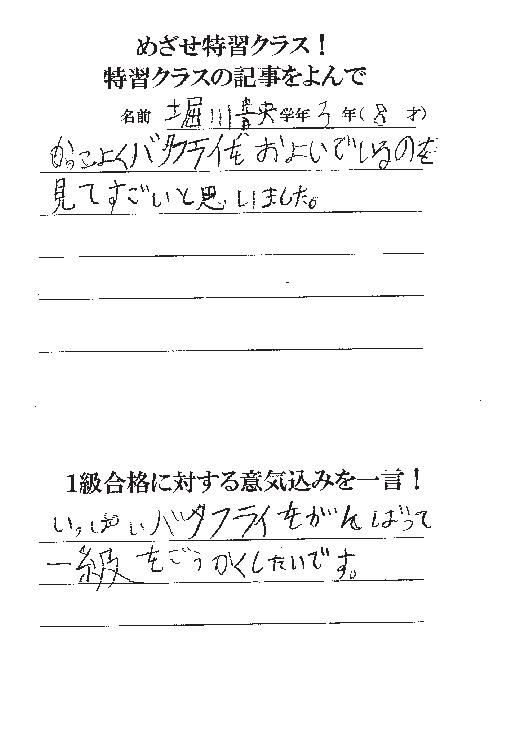 めざせ特習クラス！
特習クラスの記事をよんで
名前 堀川貴央 学年 3 年(8 才)
かっこよくバタフライを およいでいるのを
見てすごいと思いました。
1級合格に対する意気込みを一言！
いっぱいバタフライをがんばって
一級をごうかくしたいです。